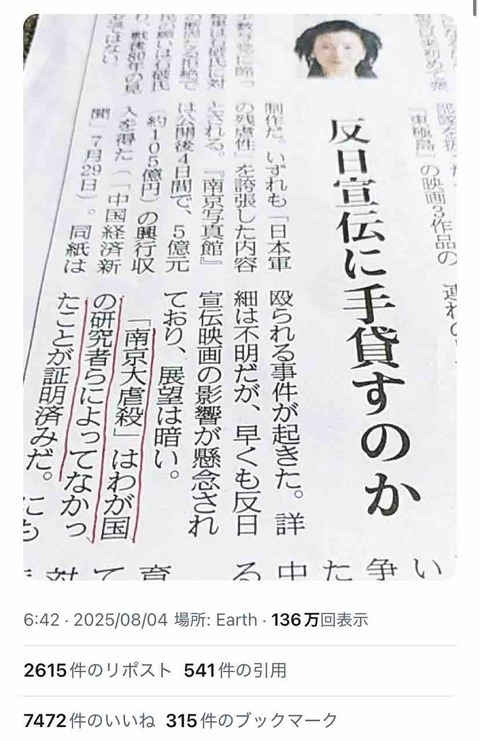 「東極島」の映画3作品の
反日宣伝に手貸すのか
制作だ。いずれも「日本軍
の残虐性」を誇張した内容
とされる。『南京写真館』
は公開後4日間で、5億元
(約105億円)の興行収
入を得た(「中国経済新
聞」7月29日)。同紙は
殴られる事件が起きた。詳
細は不明だが、早くも反日
宣伝映画の影響が懸念され
ており、展望は暗い。
「南京大虐殺」はわが国
の研究者らによってなかっ
たことが証明済みだ。にも
6:42 · 2025/08/04 場所: Earth · 136万回表示
2615件のリポスト 541件の引用
7472件のいいね 315件のブックマーク